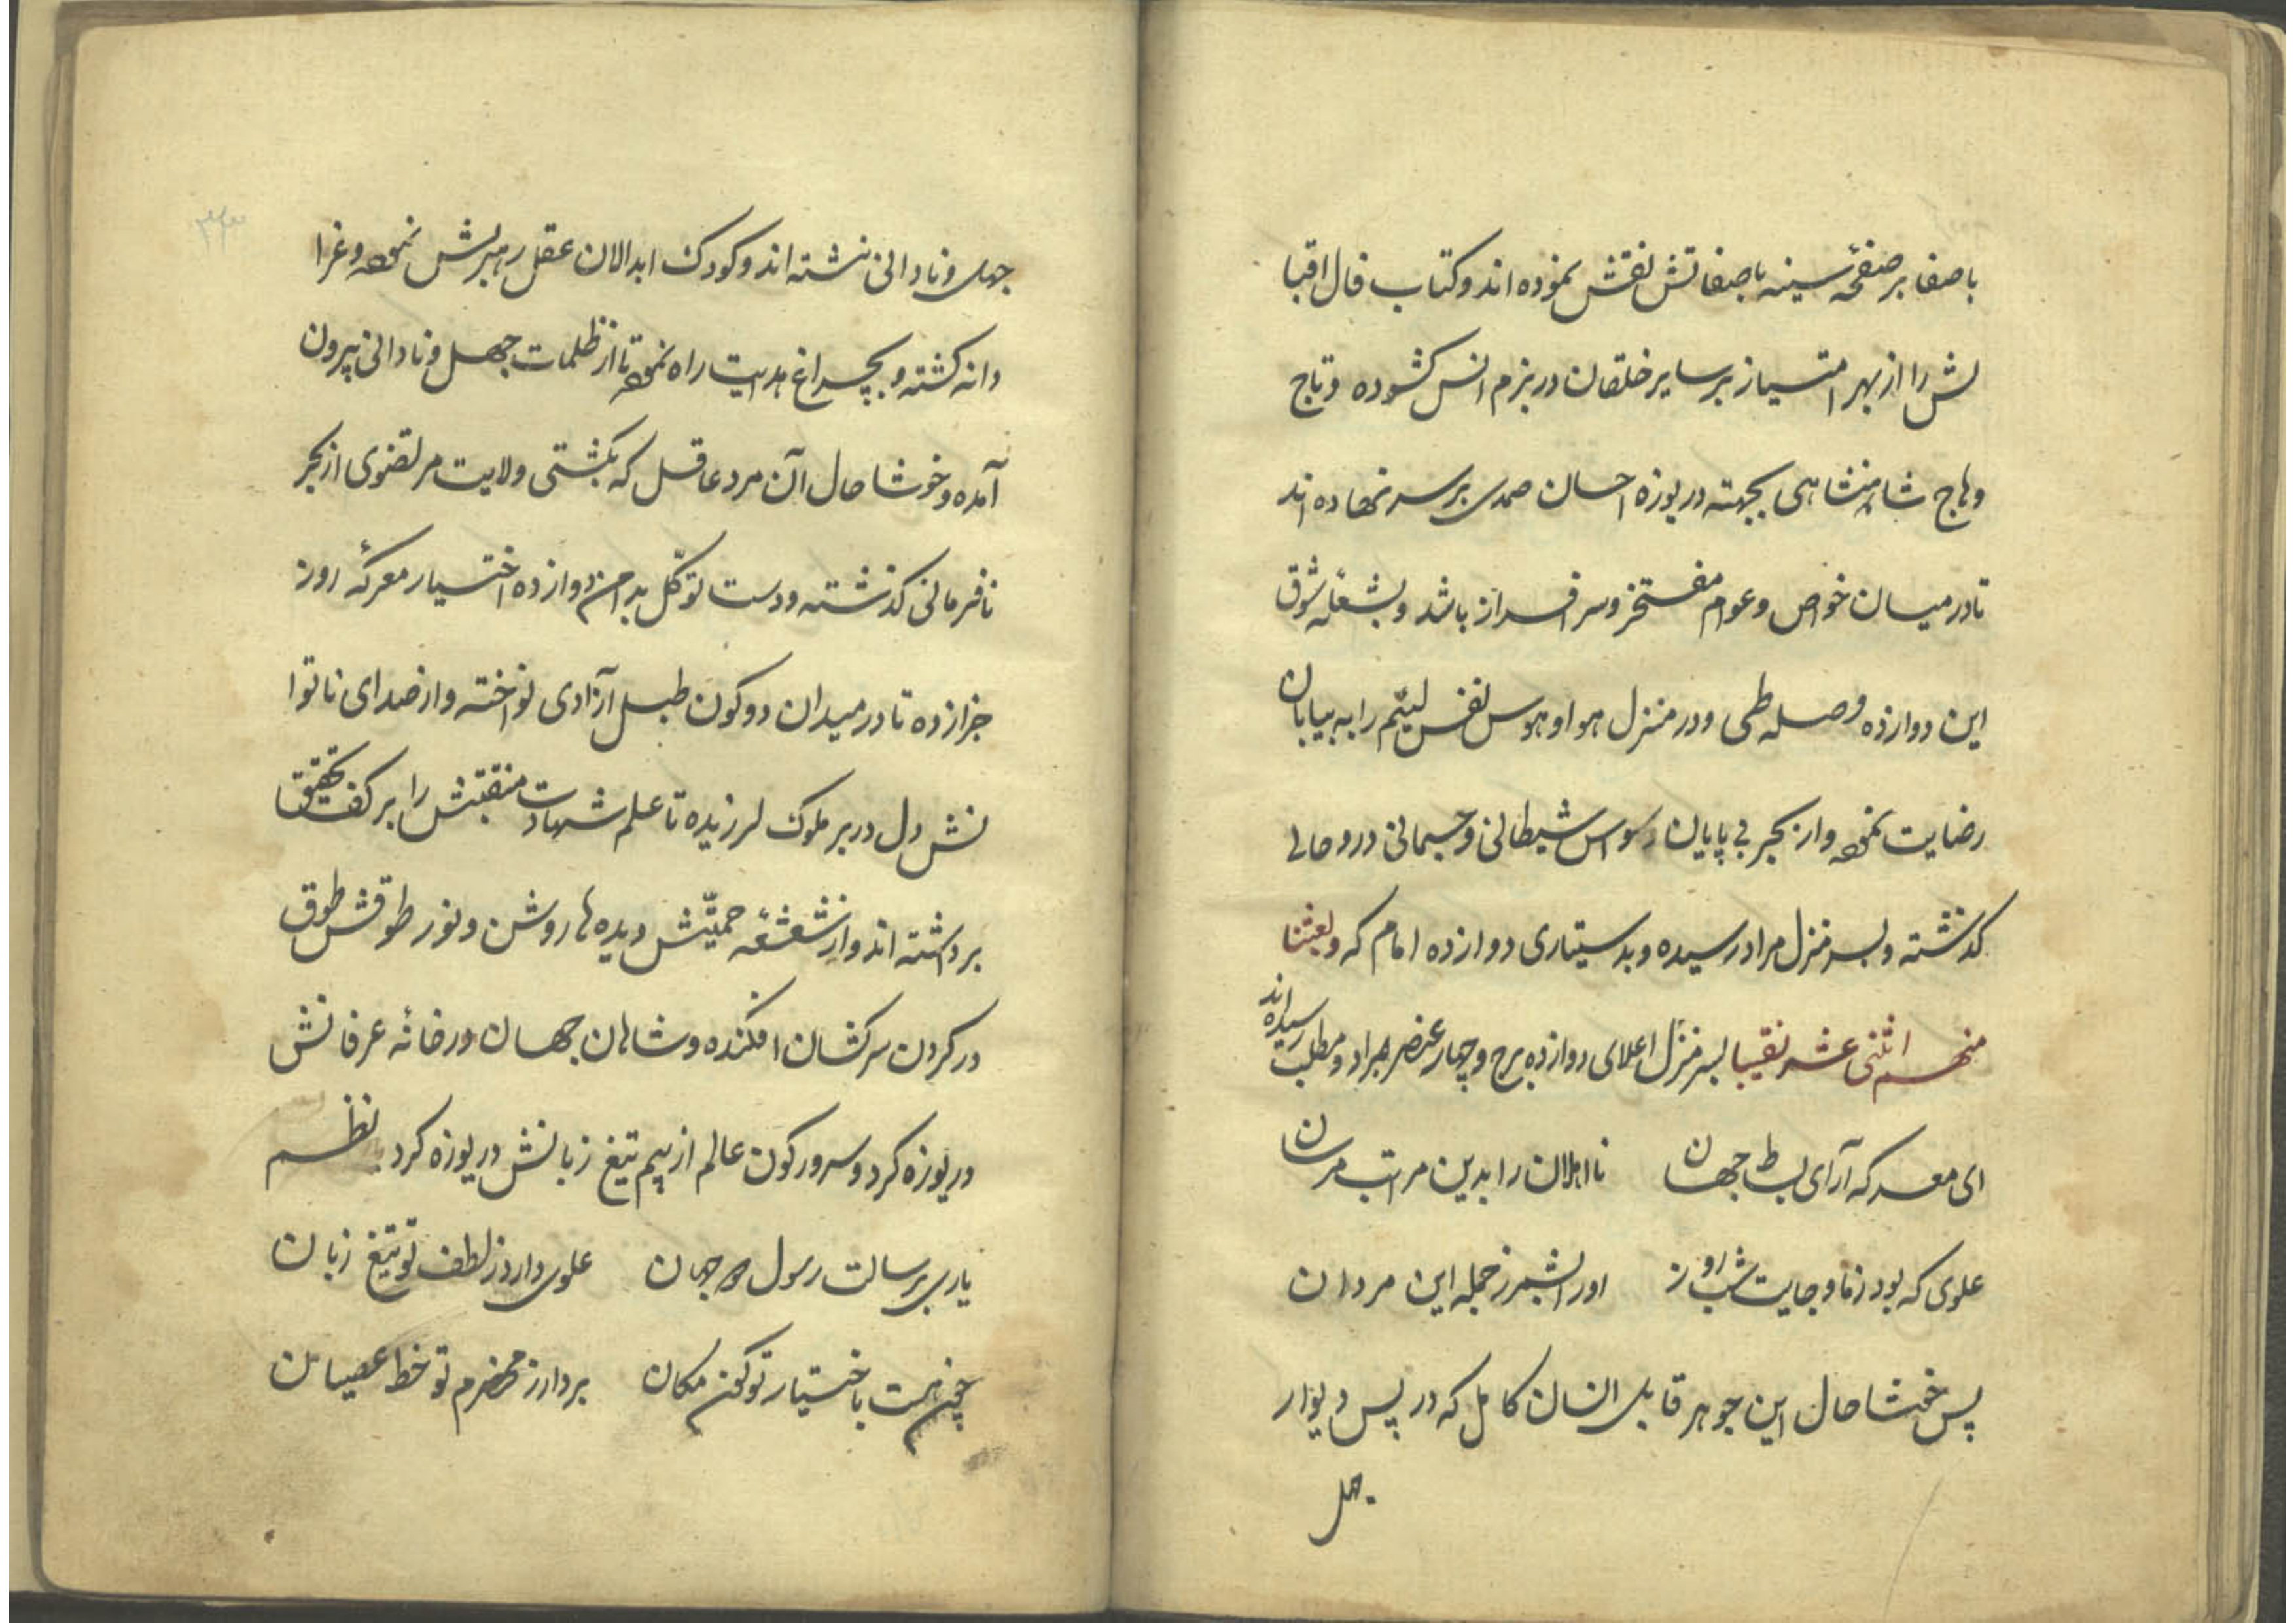 باصفا بر صفحهٔ سینه باصفاتش نقش نموده اند و کتاب فال اقبا
لش را از بهر امتیاز بر سایر خلقان در بزم انس کشوده و تاج
وهاج شاهنشاهی بجهته دریوزه احسان صمدی بر سر نهاده اند
تا در میان خواص و عوام مفتخر و سرافراز باشد و بشعلهٔ شوق
این دوازده وصله طی و در منزل هوا و هوس نفس لئیم را به بیابان
رضایت نموده و از بحر بی پایان وسواس شیطانی و جسمانی در و حالی
کذشته و بسر منزل مراد رسیده و بدستیاری دوازده امام که و بعثنا
منهم اثنی عشر نقیبا بسر منزل اعلای دوازده برج و چهار عنصر مراد و مطلب رسیده اند
ای معرکه آرای بسط جهان نااهلان را بدین مراتب مرسان
علوی که بود ز جایت شب و روز اورا بشمر ز جمله این مردان
پس خوشا حال این جوهر قابل انسان کامل که در پس دیوار
جهل
جهل و نادانی ننشته اند و کودک ابدالان عقل رهبریش نموده و غرا
دانه کشته و بچراغ هدایت راه نموده تا از ظلمات جهل و نادانی بیرون
آمده و خوشا حال آن مرد عاقل که بکشتی ولایت مرتضوی از بحر
نافرمانی کذشته و دست توکّل بدامن دوازده اختیار معرکهٔ روز
جزا زده تا در میدان دو کون طبل آزادی نواخته و از صدای ناتوا
نش دل در بر ملوک لرزیده تا علم شهادت منقبتش را بر کف تحقیق
برداشته اند و از شعشعهٔ حمیّتش دیده ها روشن و نور طوقش طوق
در کردن سرکشان افکنده و شاهان جهان در خانهٔ عرفانش
دریوزه کرد و سرور کون عالم از بیم تیغ زبانش دریوزه کرد نظم
یارب برسالت رسول دو جهان علوی دارد ز لطف تو تیغ زبان
چون هست باختیار تو کون مکان بردار ز محضرم تو خط عصیان